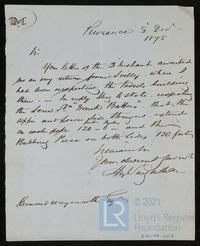 Penzance 5 Decr
1875
Sir
Your letter of the 3rd instant awaited
me on my return from Scilly, where I
had been inspecting the Vessels building
there. — In reply I beg to state, respecting
the Screw Str
that, the
upper and lower Stringers extend
on each side 120 - 0 — and the
Rubbing Piece on both sides 130 feet.
I remain Sir
Your obedient Servant
Bernard Waymouth Esq
© 2021
Lloyd's Register
Foundation